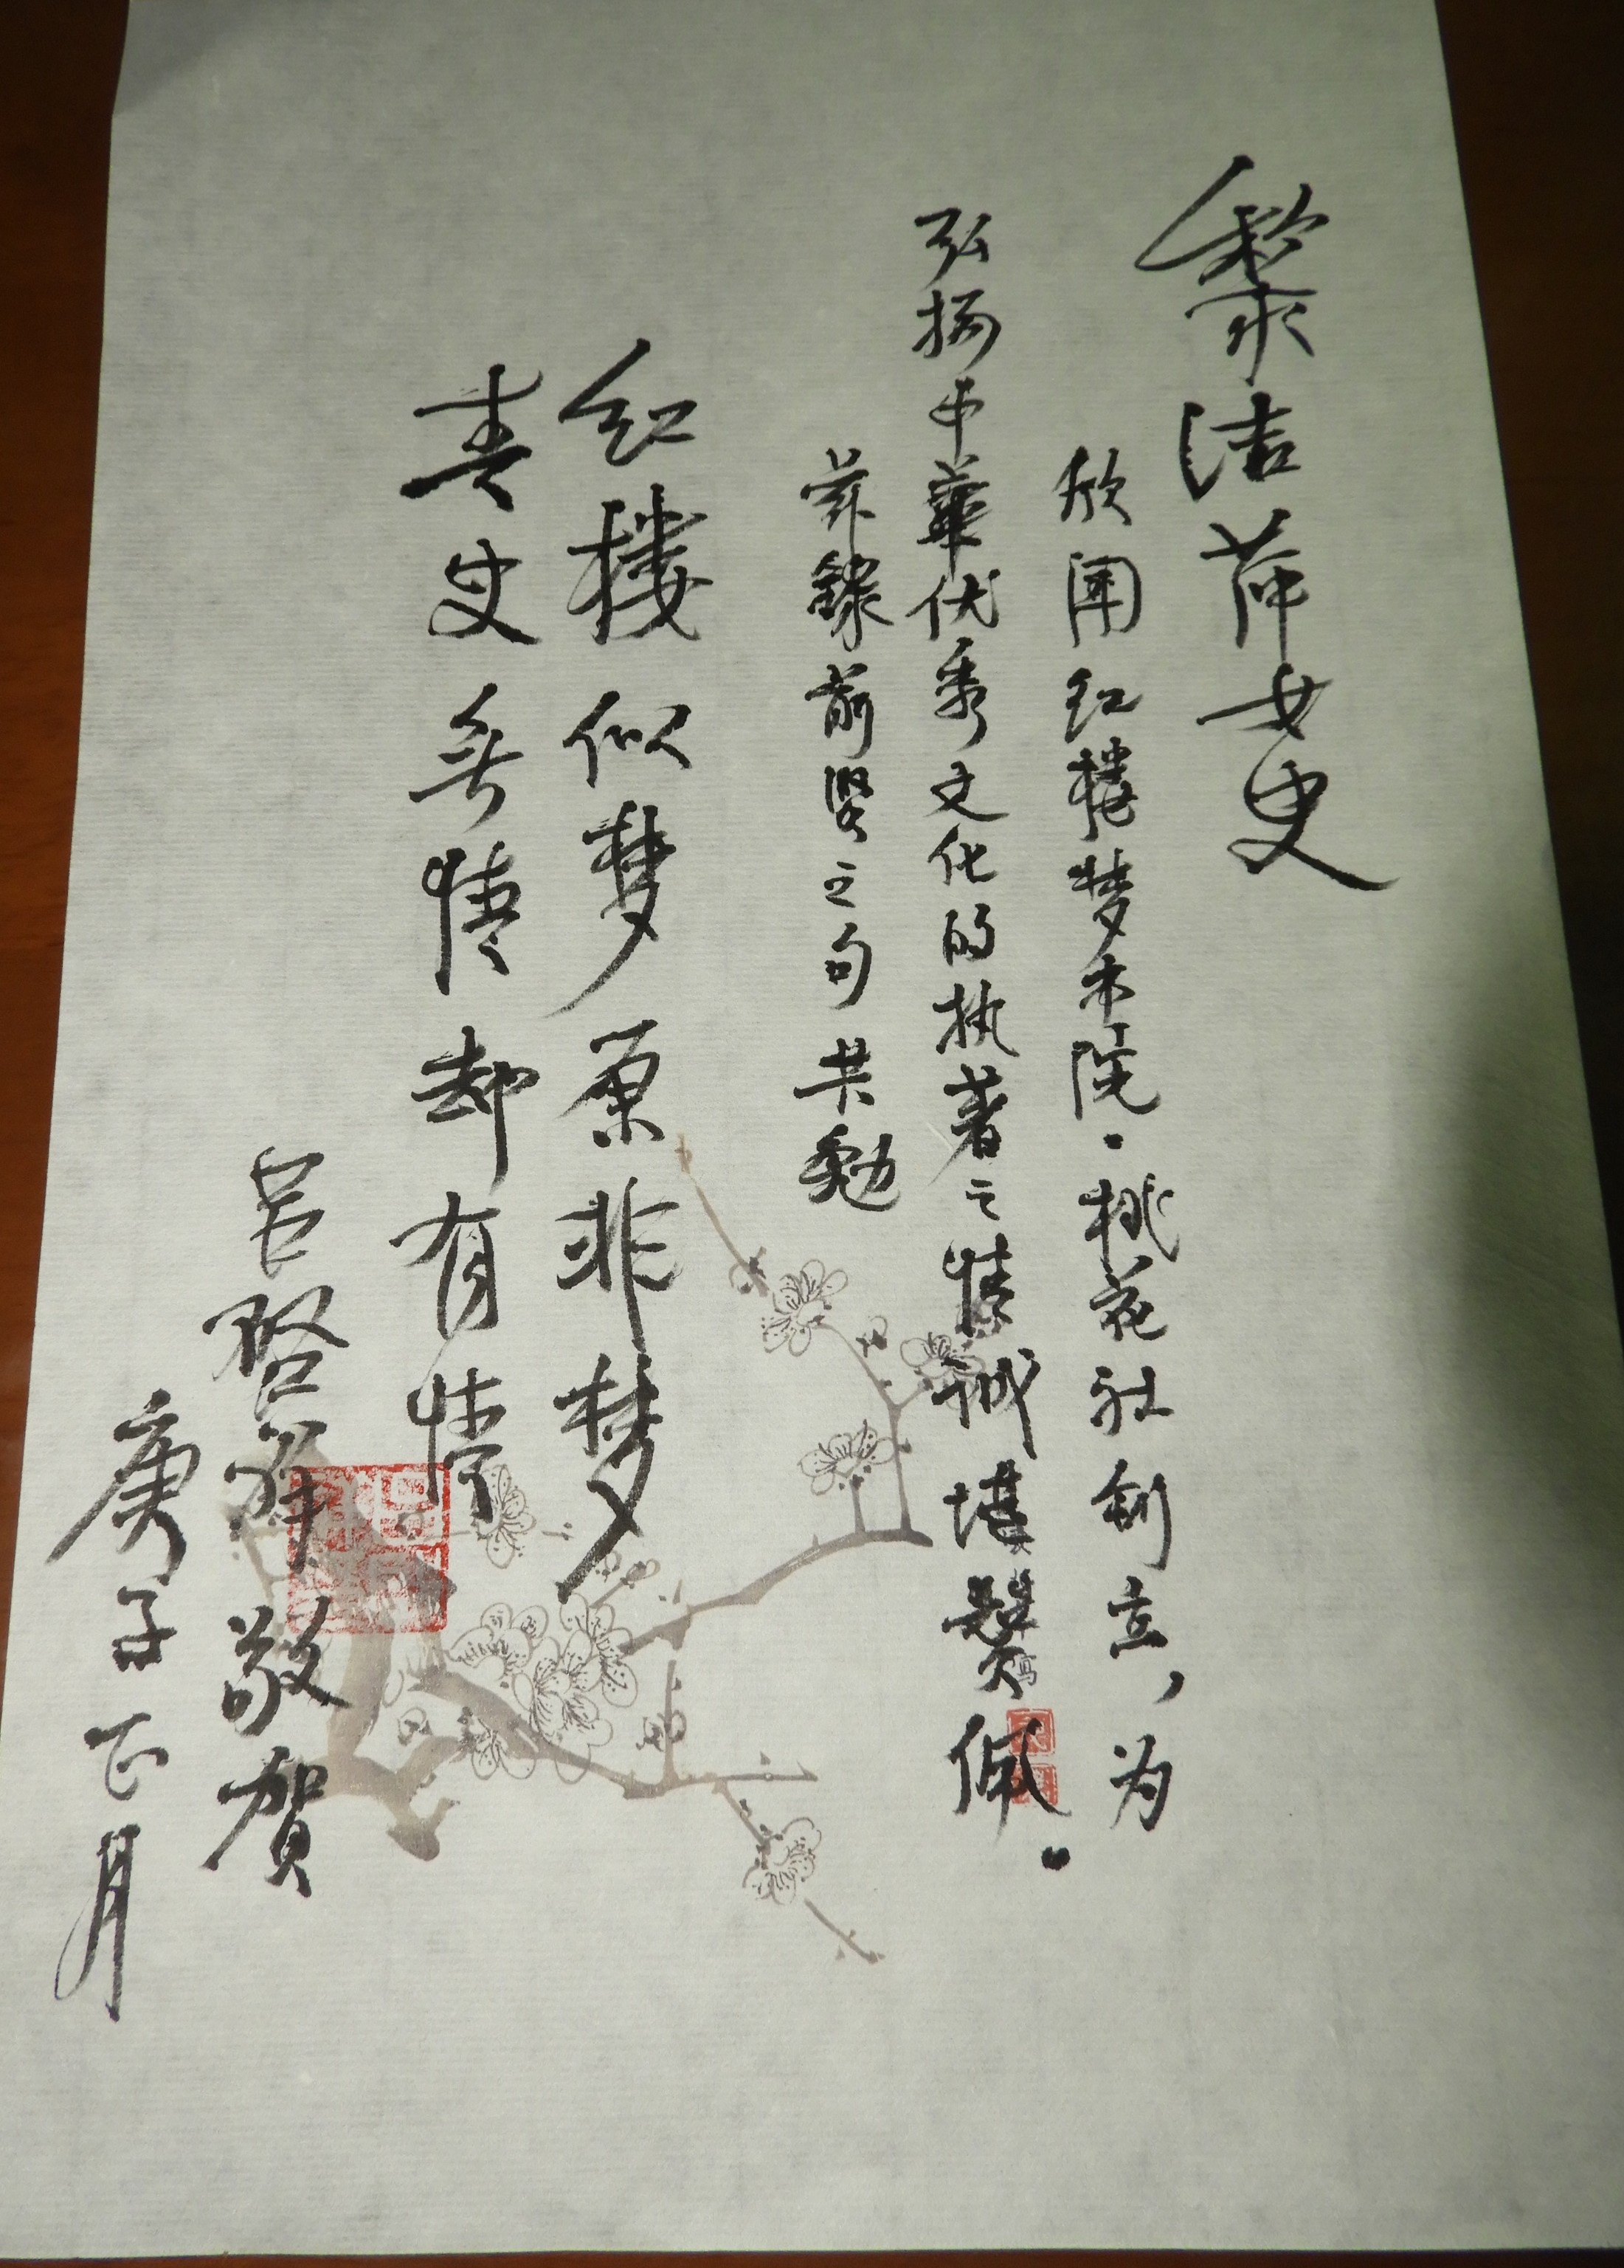 黎洁萍女史
欣闻红楼梦书院·桃花社创立，为
弘扬中華优秀文化的执著之情诚堪赞佩。
兹録前贤之句共勉
红楼似梦原非梦
青史无情却有情
吕启祥敬贺
庚子正月